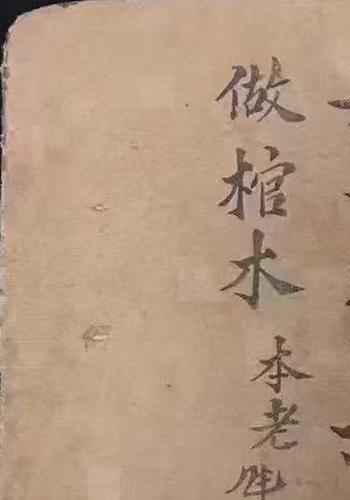 做棺木
本老